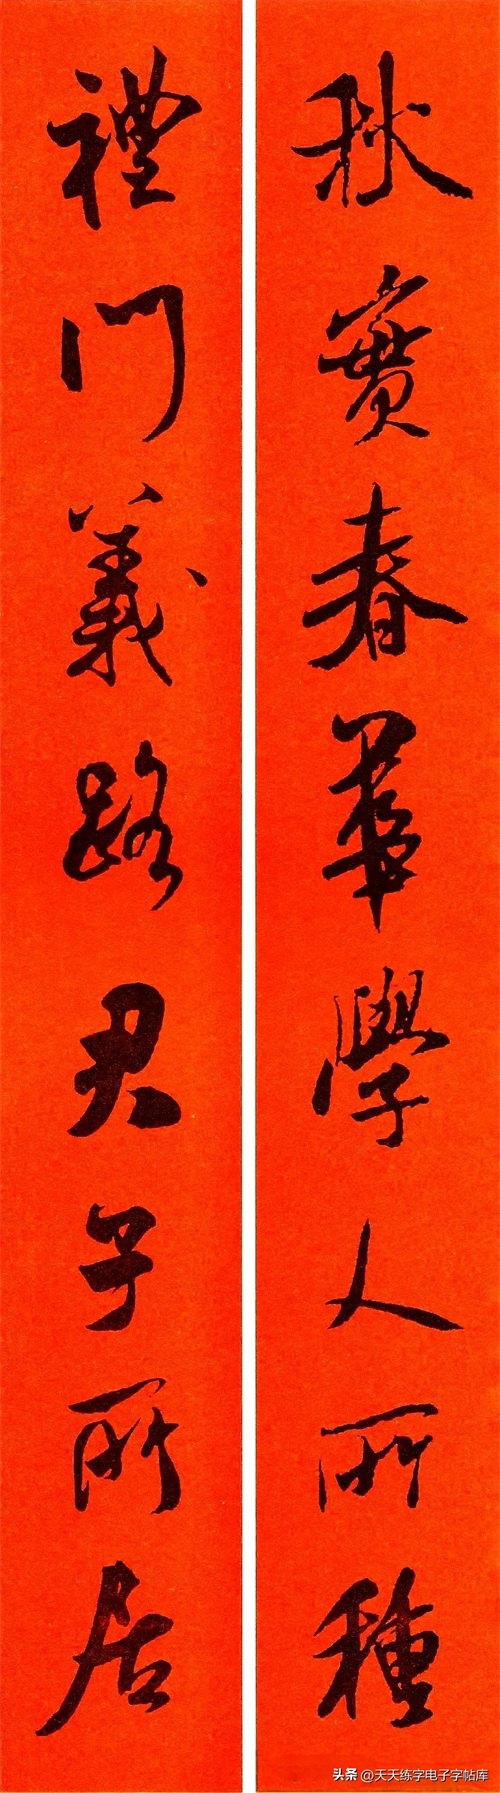 秋實春華學人所種
禮門義路君子所居
头条 @天天练字电子字帖库